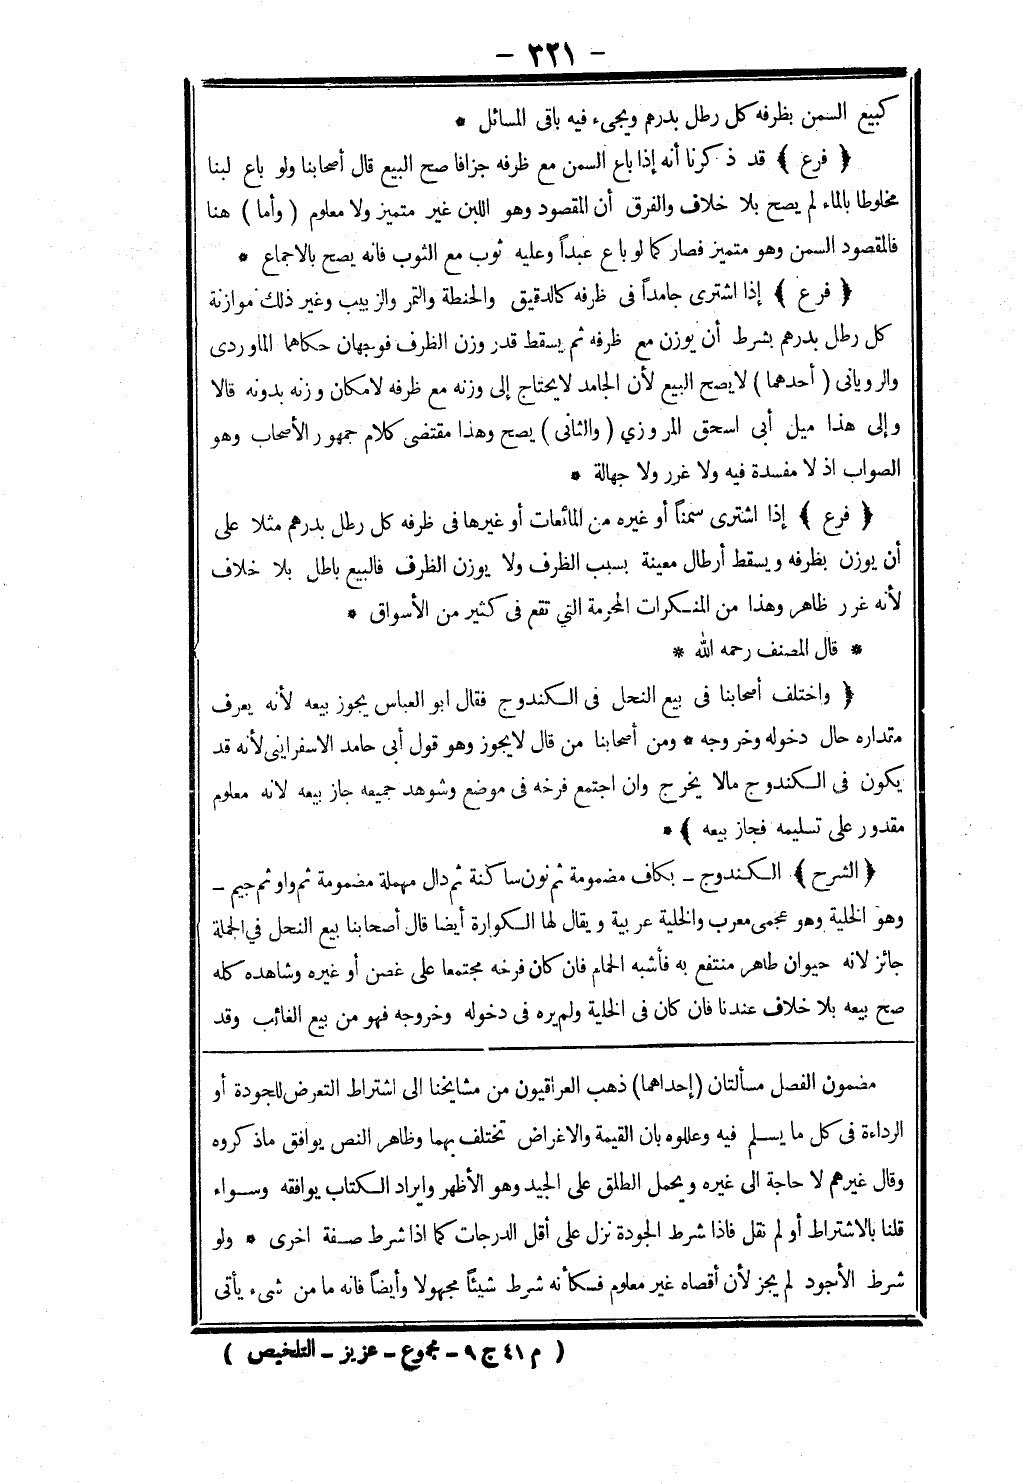 – ٣٢١ –
كبيع السمن بظرفه كل رطل بدرهم ويجىء فيه باقى المسائل *
﴿ فرع ﴾ قد ذكرنا أنه إذا باع السمن مع ظرفه جزافا صح البيع قال أصحابنا ولو باع لبنا
مخلوطا بالماء لم يصح بلا خلاف والفرق أن المقصود وهو اللبن غير متميز ولا معلوم ( وأما ) هنا
فالمقصود السمن وهو متميز فصار كما لو باع عبداً وعليه ثوب مع الثوب فانه يصح بالاجماع *
﴿ فرع ﴾ إذا اشترى جامداً فى ظرفه كالدقيق والحنطة والتمر والزبيب وغير ذلك موازنة
كل رطل بدرهم بشرط أن يوزن مع ظرفه ثم يسقط قدر وزن الظرف فوجهان حكاهما الماوردى
والرويانى ( أحدهما ) لا يصح البيع لأن الجامد لا يحتاج إلى وزنه مع ظرفه لامكان وزنه بدونه قالا
وإلى هذا ميل أبى اسحق المروزي ( والثانى ) يصح وهذا مقتضى كلام جمهور الأصحاب وهو
الصواب اذ لا مفسدة فيه ولا غرر ولا جهالة *
﴿ فرع ﴾ إذا اشترى سمناً أو غيره من المائعات أو غيرها فى ظرفه كل رطل بدرهم مثلا على
أن يوزن بظرفه ويسقط أرطال معينة بسبب الظرف ولا يوزن الظرف فالبيع باطل بلا خلاف
لأنه غرر ظاهر وهذا من المنكرات المحرمة التي تقع فى كثير من الأسواق *
* قال المصنف رحمه الله *
﴿ واختلف أصحابنا فى بيع النحل فى الكندوج فقال ابو العباس يجوز بيعه لأنه يعرف
مقداره حال دخوله وخروجه * ومن أصحابنا من قال لا يجوز وهو قول أبى حامد الاسفراينى لأنه قد
يكون فى الكندوج مالا يخرج وان اجتمع فرخه فى موضع وشوهد جميعه جاز بيعه لانه معلوم
مقدور على تسليمه فجاز بيعه ﴾ *
﴿ الشرح ﴾ الكندوج – بكاف مضمومة ثم نون ساكنة ثم دال مهملة مضمومة ثم واو ثم جيم –
وهو الخلية وهو عجمى معرب والخلية عربية ويقال لها الكوارة أيضا قال أصحابنا بيع النحل في الجملة
جائز لانه حيوان طاهر منتفع به فأشبه الحمام فان كان فرخه مجتمعا على غصن أو غيره وشاهده كله
صح بيعه بلا خلاف عندنا فان كان فى الخلية ولم يره فى دخوله وخروجه فهو من بيع الغائب وقد
مضمون الفصل مسألتان (إحداهما) ذهب العراقيون من مشايخنا الى اشتراط التعرض للجودة أو
الرداءة فى كل ما يسلم فيه وعللوه بان القيمة والاغراض تختلف بهما وظاهر النص يوافق ماذكروه
وقال غيرهم لا حاجة الى غيره ويحمل الطلق على الجيد وهو الأظهر وايراد الكتاب يوافقه وسواء
قلنا بالاشتراط أو لم نقل فاذا شرط الجودة نزل على أقل الدرجات كما اذا شرط صفة اخرى * ولو
شرط الأجود لم يجز لأن أقصاه غير معلوم فكأنه شرط شيئاً مجهولا وأيضاً فانه ما من شىء يأتى
( م ٤١ ج ٩ – مجموع – عزيز – التلخيص )